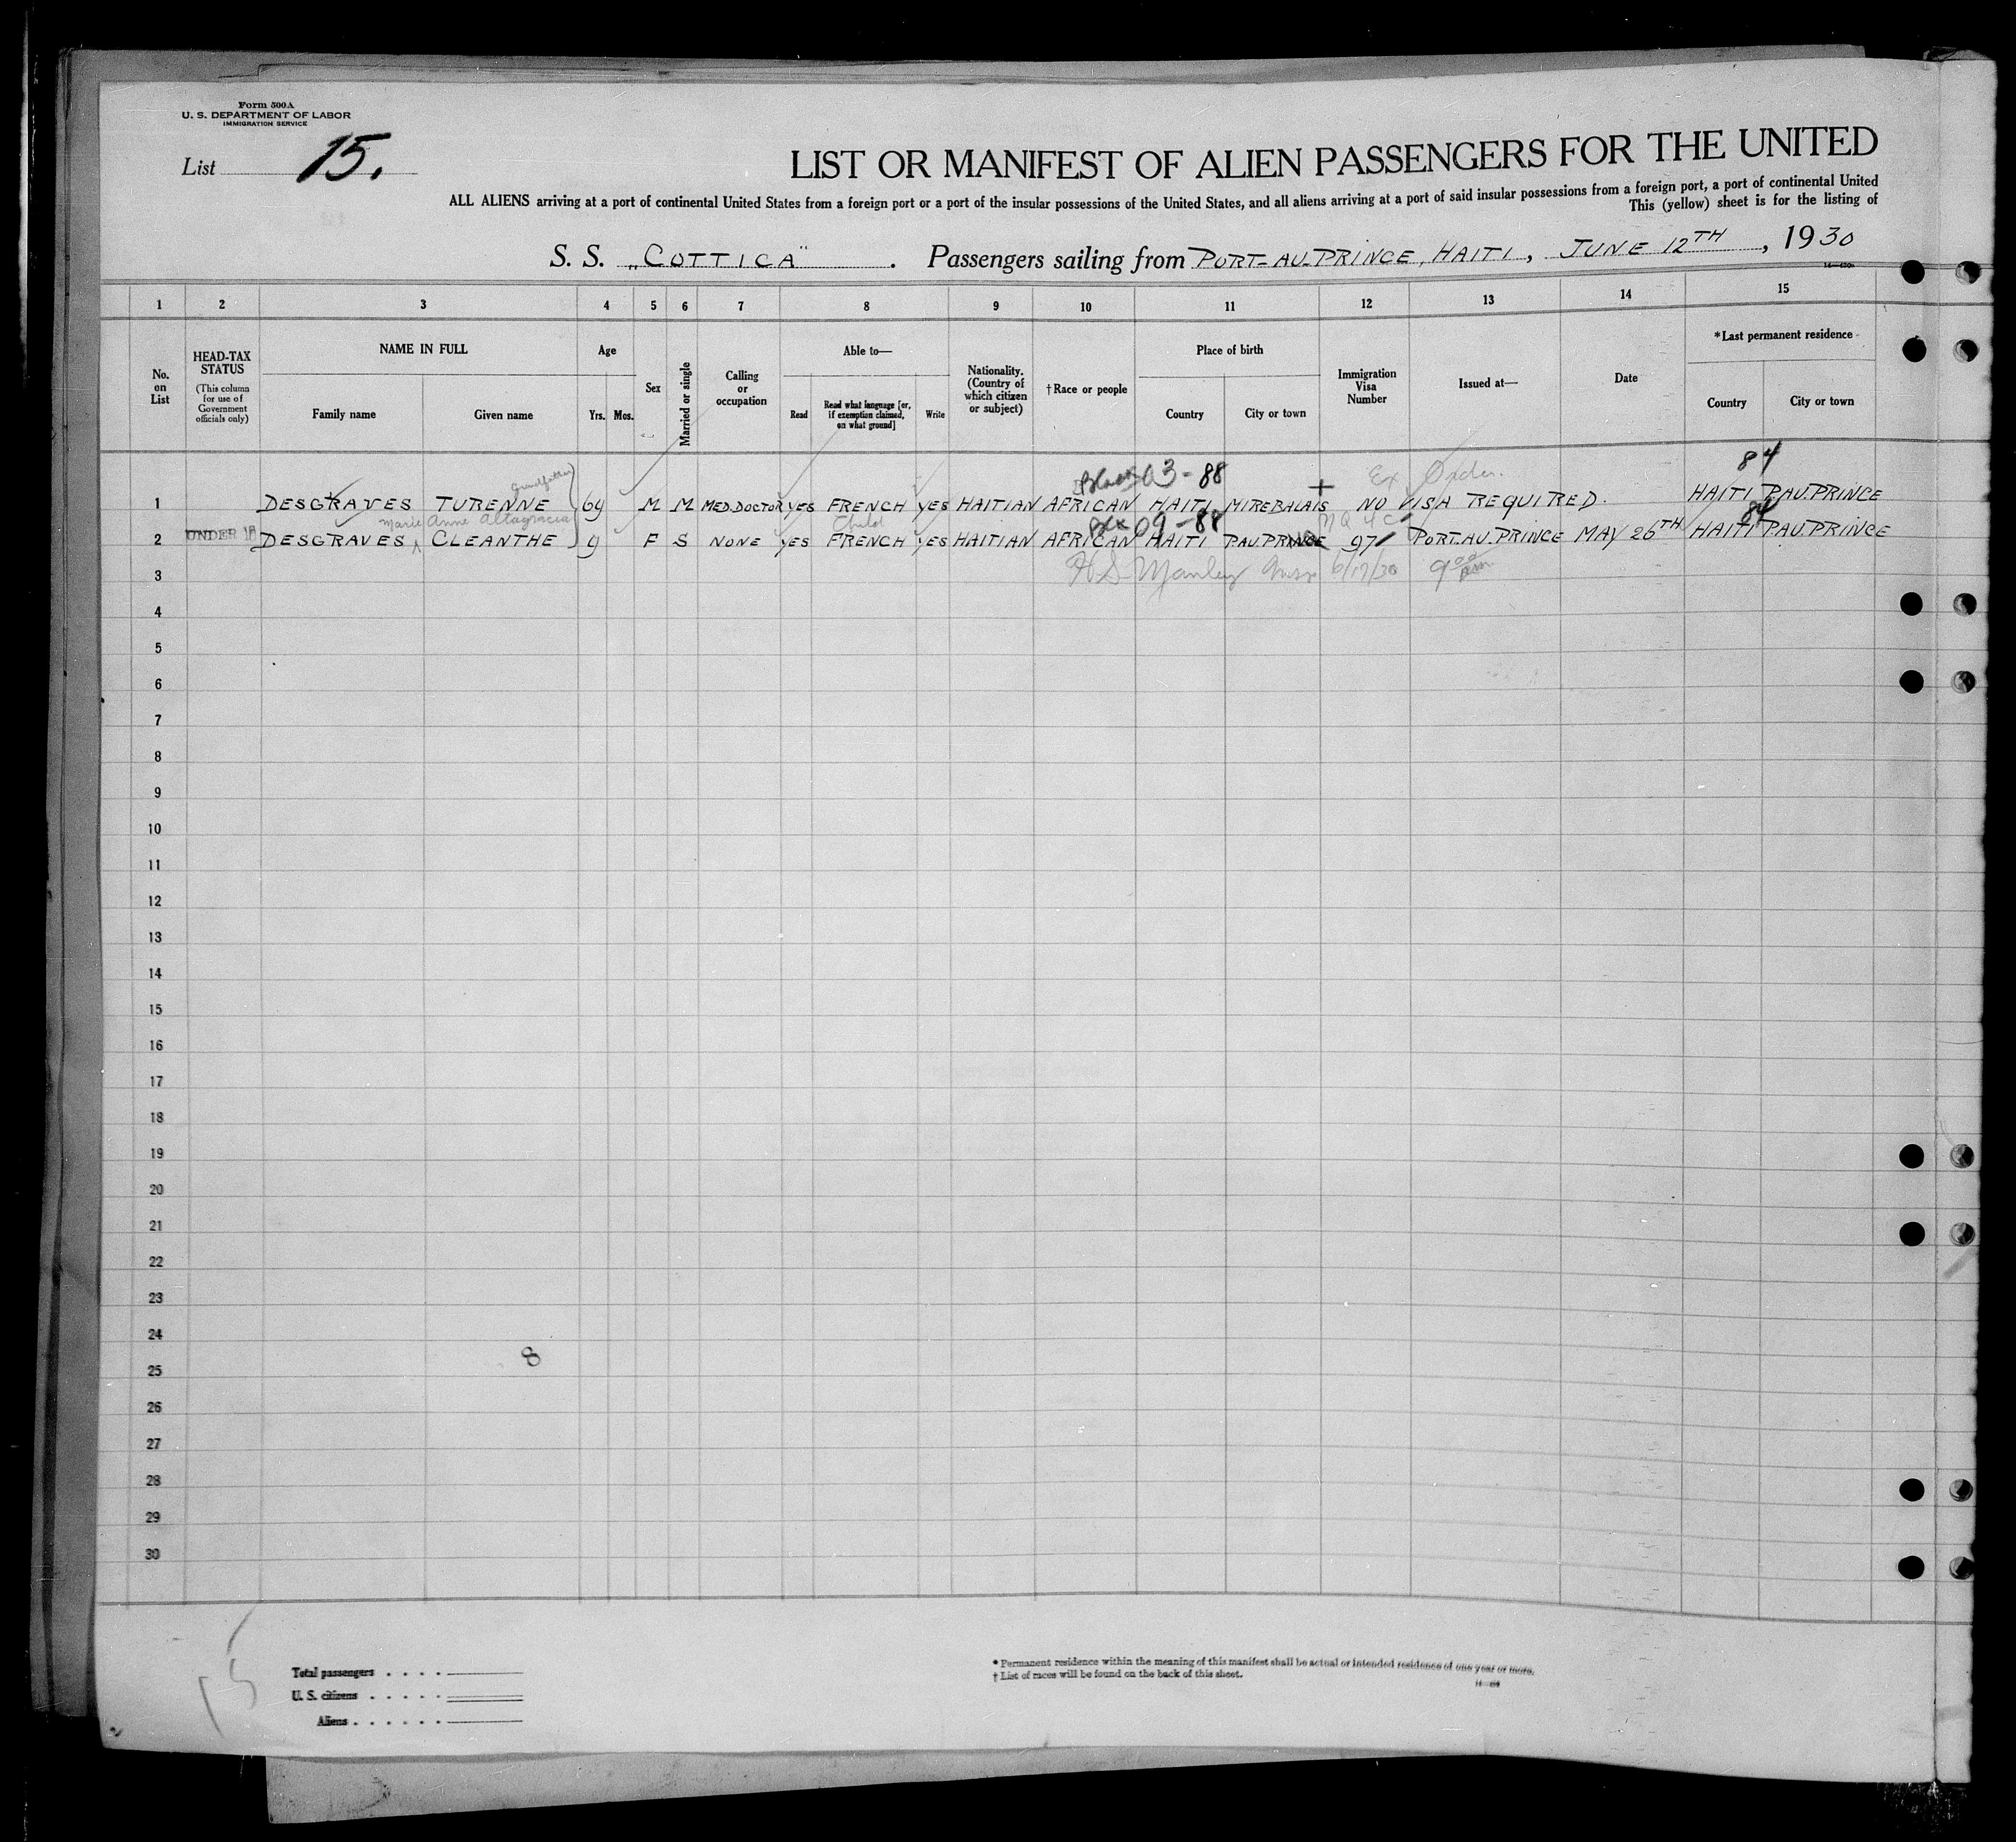 Form 500A
U. S. DEPARTMENT OF LABOR
IMMIGRATION SERVICE
List 15.
LIST OR MANIFEST OF ALIEN PASSENGERS FOR THE UNITED
ALL ALIENS arriving at a port of continental United States from a foreign port or a port of the insular possessions of the United States, and all aliens arriving at a port of said insular possessions from a foreign port, a port of continental United
This (yellow) sheet is for the listing of
S. S. „COTTICA" . Passengers sailing from PORT-AU-PRINCE, HAITI, JUNE 12TH, 1930
1 2 3 4 5 6 7 8 9 10 11 12 13 14 15
No. on List
HEAD-TAX STATUS
(This column for use of Government officials only)
NAME IN FULL
Family name
Given name
Age
Yrs.
Mos.
Sex
Married or single
Calling or occupation
Able to—
Read
Read what language [or, if exemption claimed, on what ground]
Write
Nationality. (Country of which citizen or subject)
†Race or people
Place of birth
Country
City or town
Immigration Visa Number
Issued at—
Date
*Last permanent residence
Country
City or town
Grandfather Black 03-88 Ex Order. 84
1 DESGRAVES TURENNE 69 M M MED.DOCTOR YES FRENCH YES HAITIAN AFRICAN HAITI MIREBALAIS NO VISA REQUIRED. HAITI P.AU.PRINCE
Marie Anne Altagracia Child 09-88 NQ 4C 84
UNDER 16
2 DESGRAVES CLEANTHE 9 F S NONE YES FRENCH YES HAITIAN AFRICAN HAITI P.AU.PRINCE 97 PORT.AU.PRINCE MAY 26TH HAITI P.AU.PRINCE
3 H S Manley Insp 6/17/30 9 00 am
4
5
6
7
8
9
10
11
12
13
14
15
16
17
18
19
20
21
22
23
24
8
25
26
27
28
29
30
Total passengers
U. S. citizens
Aliens
* Permanent residence within the meaning of this manifest shall be actual or intended residence of one year or more.
† List of races will be found on the back of this sheet.